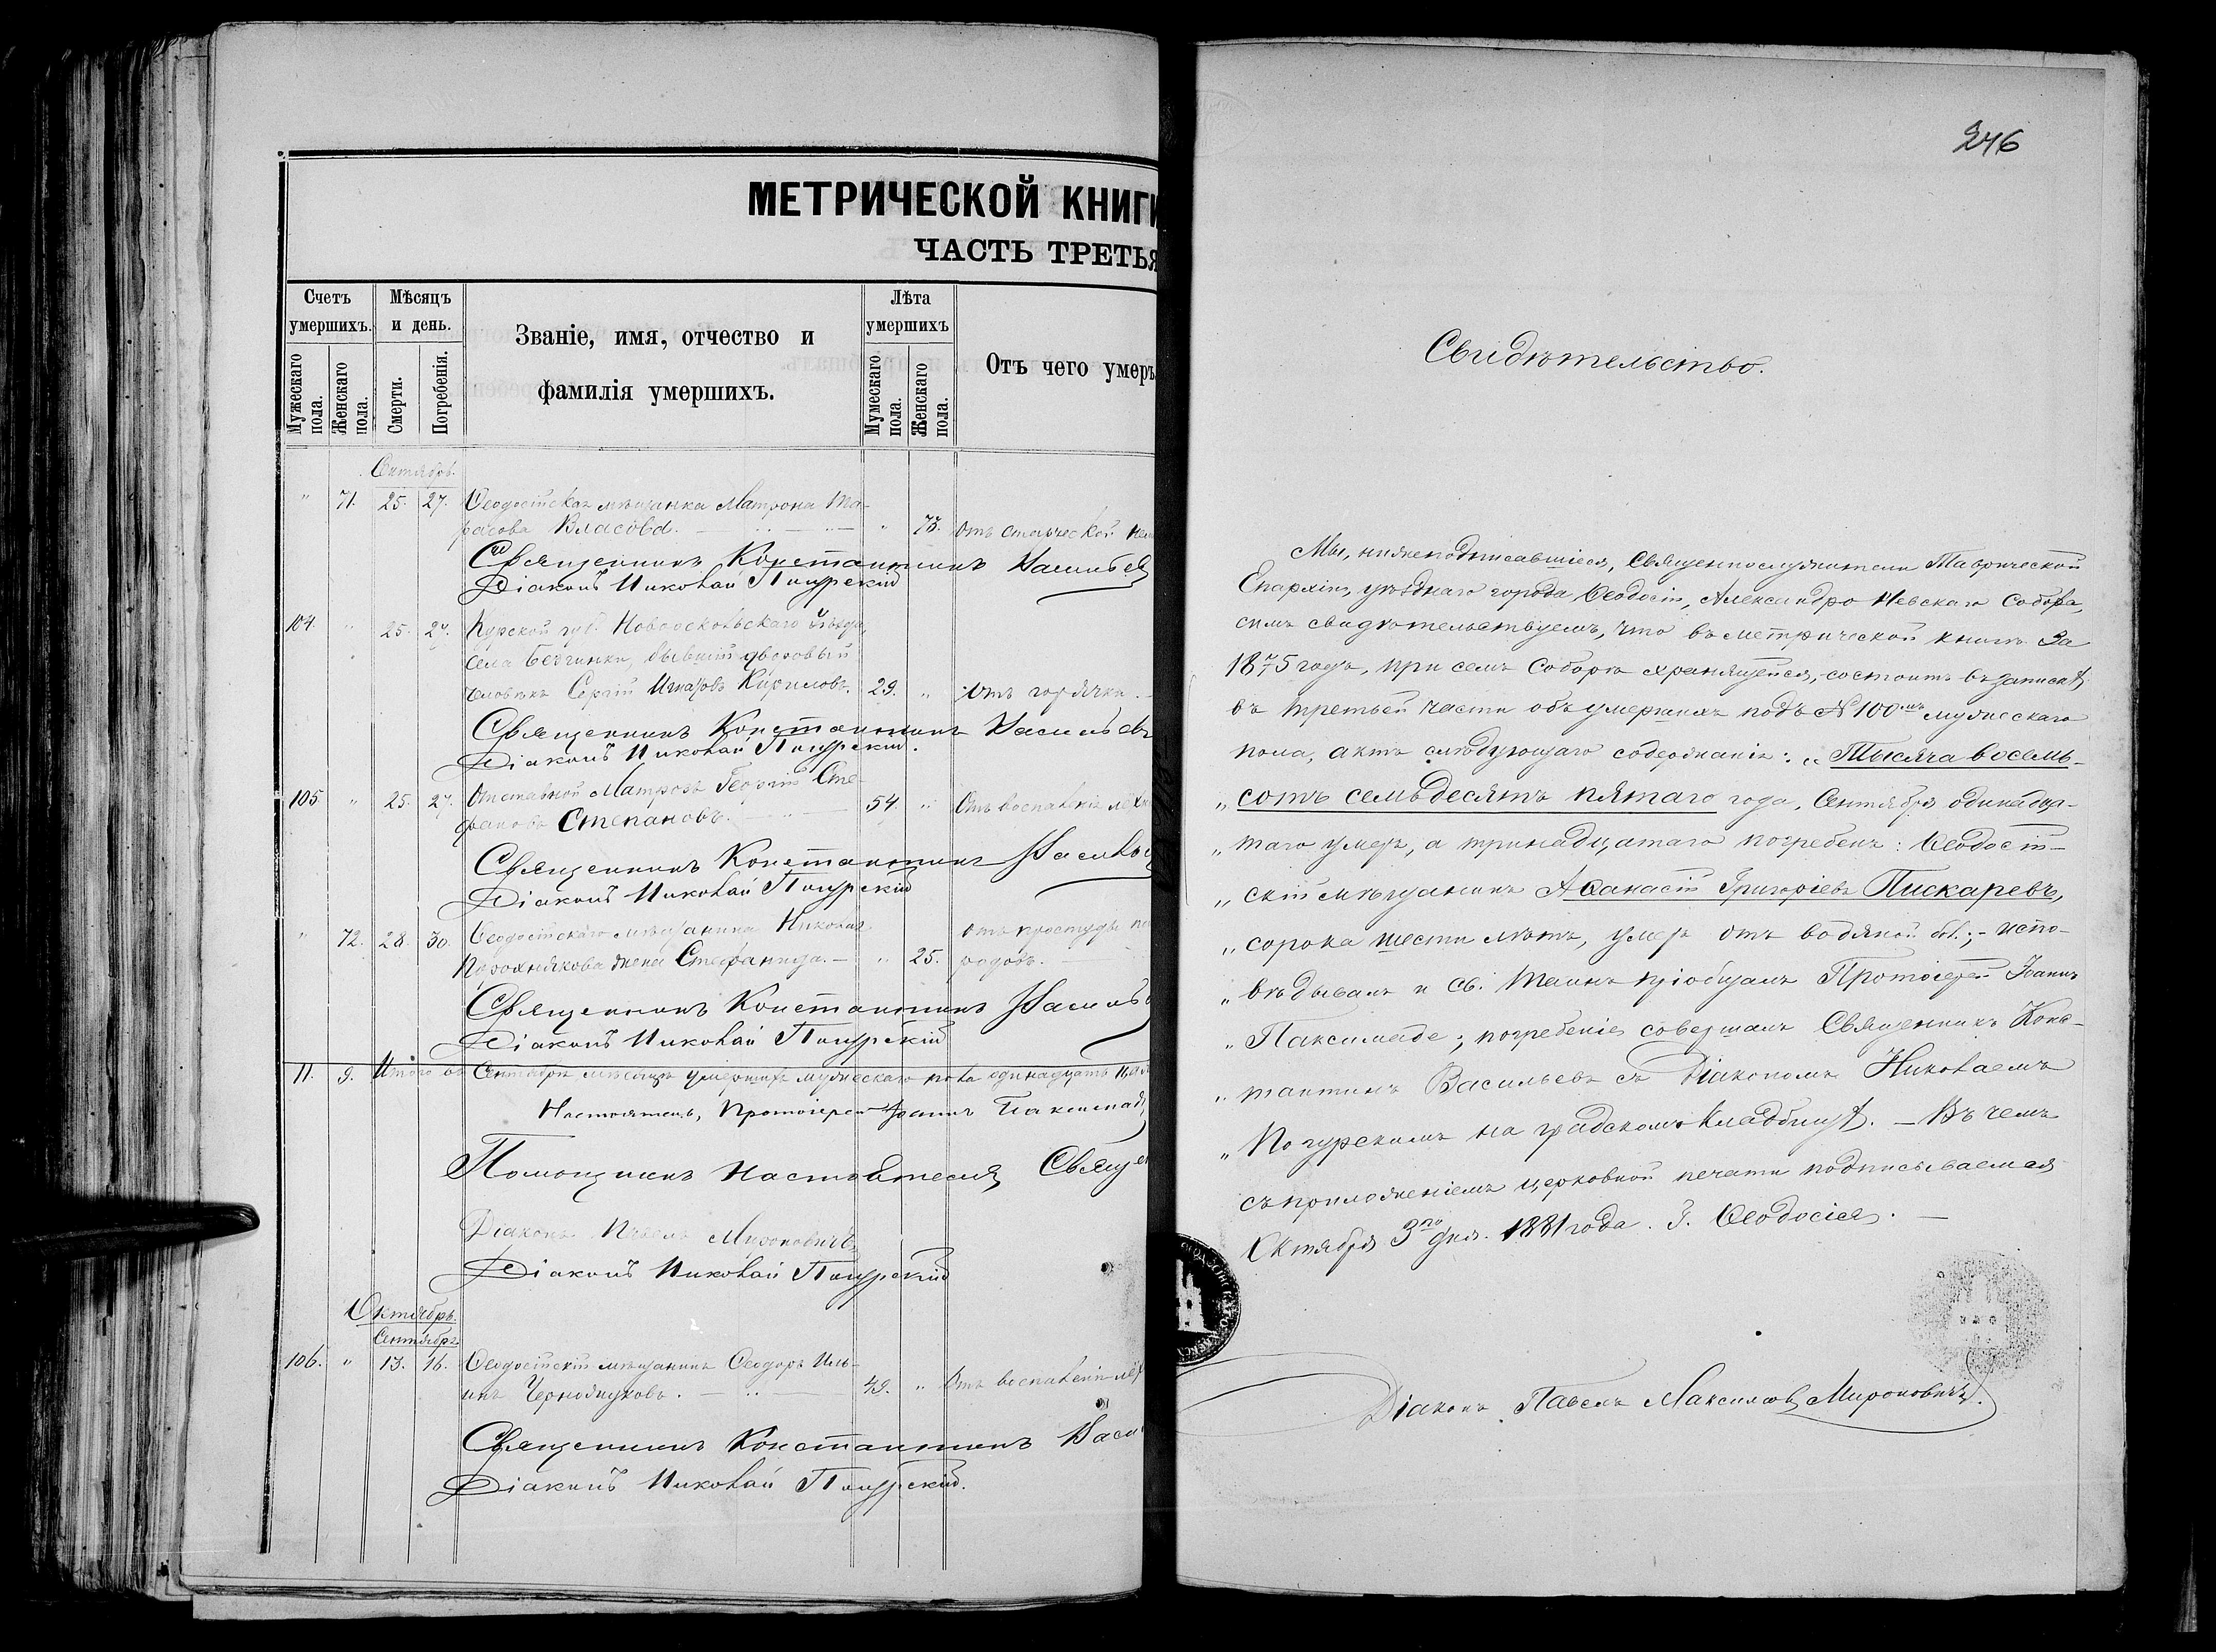 МЕТРИЧЕСКОЙ КНИГИ
ЧАСТЬ ТРЕТЬЯ
Счетъ умершихъ.
Мужескаго пола.
Женскаго пола.
Мѣсяцъ и день.
Смерти.
Погребенія.
Званіе, имя, отчество и
фамилія умершихъ.
Лѣта умершихъ
Мужескаго пола.
Женскаго пола.
Отъ чего умеръ
" 71. 25. 27. Ѳеодосійская мѣщанка Матрона Та-
расова Власова. " отъ старческой
Священникъ Константинъ Васильев
Діаконъ Николай Пигурскій
104. " 25. 27. Курской губ. Новооскольскаго уѣзда,
села бывшій дворовый
человѣкъ Сергій Кириловъ. 29. " отъ горячки.
Священникъ Константинъ Васильевъ
Діаконъ Николай Пигурскій.
105. " 25. 27. Отставной Матросъ Георгій Сте-
фановъ Степановъ. 54. " Отъ воспаленія
Священникъ Константинъ Василь
Діаконъ Николай Пигурскій
" 72. 28. 30. Ѳеодосійскаго мѣщанина Николая
Порохнякова жена Стефанида. " 25. отъ простуды
родовъ.
Священникъ Константинъ Василь
Діаконъ Николай Пигурскій
11. 9. Итого въ Сентябрѣ мѣсяцѣ умершихъ мужескаго пола одинадцать
Настоятель, Протоіерей Іоаннъ Паксимад
Помощникъ Настоятеля, Священ
Діаконъ Павелъ Мироновичъ
Діаконъ Николай Пигурскій
Октябрь.
Сентябрь
106. " 13. 16. Ѳеодосійскій мѣщанинъ Ѳеодоръ Иль-
инъ Черножуковъ. 49. " Отъ воспаленія
Священникъ Константинъ Васи
Діаконъ Николай Пигурскій.
246
Свидѣтельство.
Мы, нижеподписавшіеся, Священнослужители Таврической
Епархіи, уѣзднаго города Ѳеодосіи, Александро Невскаго Собора,
симъ свидѣтельствуемъ, что въ метрической книгѣ за
1875 годъ, при семъ Соборѣ хранящейся, состоитъ въ записи,
въ третьей части объ умершихъ подъ № 100мъ мужескаго
пола, актъ слѣдующаго содержанія: „Тысяча восемь-
„сотъ семьдесятъ пятаго года, Сентября одинадца-
„таго умеръ, а тринадцатаго погребенъ: Ѳеодосій-
„скій мѣщанинъ Аѳанасій Григоріевъ Пискаревъ,
„сорока шести лѣтъ, умеръ отъ водяной бол.; - испо-
„вѣдывалъ и Св. Таинъ пріобщалъ Протоіерей Іоаннъ
„Паксимаде; погребеніе совершалъ Священникъ Конс-
„тантинъ Васильевъ съ Діакономъ Николаемъ
„Погурскимъ на градскомъ кладбищѣ. — Въ чемъ
съ приложеніемъ церковной печати подписываемся
Октября 3го дня. 1881 года. Г. Ѳеодосія. —
Діаконъ Павелъ Максимовъ Мироновичъ.